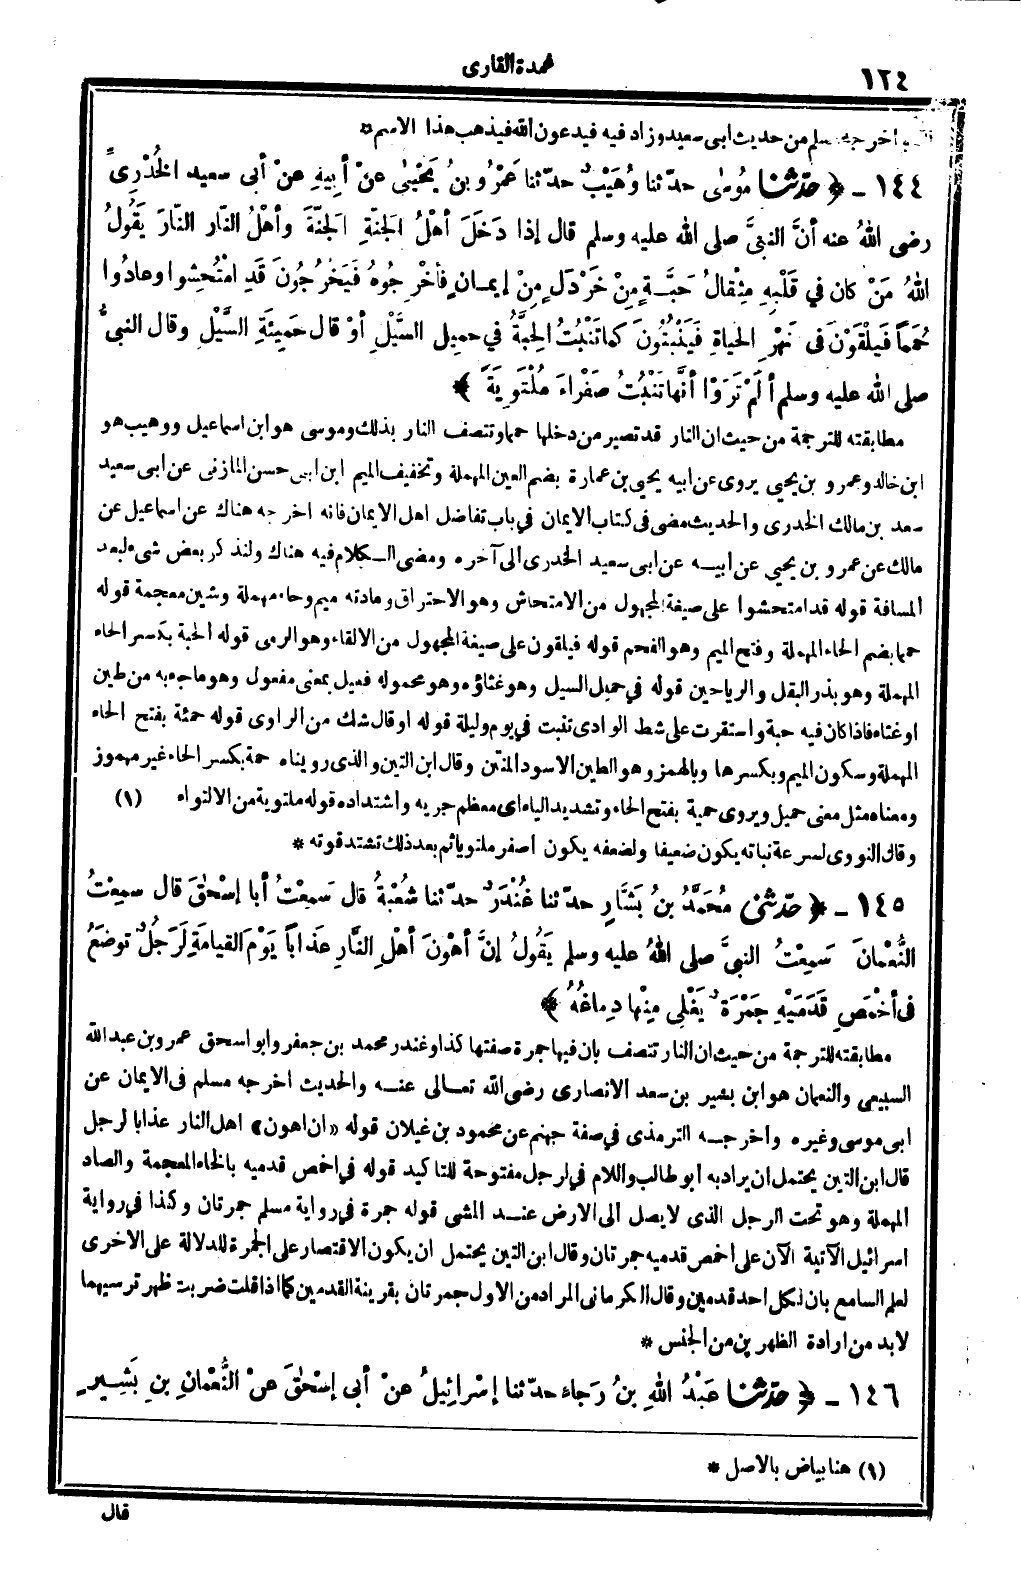 ١٢٤
عمدة القارى
اخرجه مسلم من حديث ابى سعيد وزاد فيه فيدعون الله فيذهب هذا الاسم *
١٤٤ - ﴿ حدّثنا مُوسٰى حدثنا وُهَيْبٌ حدّثنا عَمْرُو بنُ يَحْيٰى عنْ أبِيهِ عنْ أبى سعيد الخُدْرِىِّ
رضى اللهُ عنه أنَّ النبىَّ صلى الله عليه وسلم قال إذا دَخَلَ أهْلُ الجَنّةِ الجَنّةَ وأهْلُ النّار النّارَ يَقُولُ
اللهُ مَنْ كان فِي قَلْبِهِ مِثْقالُ حَبَّةٍ مِنْ خَرْدَلٍ مِنْ إيمانٍ فأخْرِجُوهُ فَيَخْرُجُونَ قَدِ امْتُحِشوا وعادُوا
حُمَماً فَيلْقَوْنَ فى نَهْرِ الحَياةِ فَيَنْبُتُونَ كما تَنْبُتُ الحِبَّةُ فِي حميل السَّيْلِ أوْ قال حَمِيئَةِ السَّيْلِ وقال النبىُّ
صلى الله عليه وسلم ألَمْ تَرَوْا أنَّها تَنْبُتُ صَفْراءَ مُلْتَوِيَةً ﴾
مطابقته للترجمة من حيث ان النار قد تصير من دخلها حمما وتتصف النار بذلك وموسى هو ابن اسماعيل ووهيب هو
ابن خالد وعمرو بن يحيي يروى عن ابيه يحيي بن عمارة بضم العين المهملة وتخفيف الميم ابن ابى حسن المازنى عن ابى سعيد
سعد بن مالك الخدرى والحديث مضى فى كتاب الايمان فى باب تفاضل اهل الايمان فانه اخرجه هناك عن اسماعيل عن
مالك عن عمرو بن يحيي عن ابيه عن ابى سعيد الخدرى الى آخره ومضى الكلام فيه هناك ولنذكر بعض شىء لبعد
المسافة قوله قد امتحشوا على صيغة المجهول من الامتحاش وهو الاحتراق ومادته ميم وحاء مهملة وشين معجمة قوله
حمما بضم الحاء المهملة وفتح الميم وهو الفحم قوله فيلقون على صيغة المجهول من الالقاء وهو الرمى قوله الحبة بكسر الحاء
المهملة وهو بذر البقل والرياحين قوله فى حميل السيل وهو غثاؤه وهو محموله فعيل بمعنى مفعول وهو ما جاء به من طين
او غثاء فاذا كان فيه حبة واستقرت على شط الوادى تنبت فى يوم وليلة قوله او قال شك من الراوى قوله حمئة بفتح الحاء
المهملة وسكون الميم وبكسرها وبالهمز وهو الطين الاسود المنتن وقال ابن التين والذى رويناه حمة بكسر الحاء غير مهموز
ومعناه مثل معنى حميل ويروى حمية بفتح الحاء وتشديد الياء اى معظم جريه واشتداده قوله ملتوية من الالتواء (١)
وقال النووى لسرعة نباته يكون ضعيفا ولضعفه يكون اصفر ملتويا ثم بعد ذلك تشتد قوته *
١٤٥ - ﴿ حدّثنى مُحَمَّدُ بنُ بَشَّارٍ حدّثنا غُنْدَرٌ حدّثنا شُعْبَةُ قال سَمِعْتُ أبا إسْحٰقَ قال سمِعْتُ
النُّعْمانَ سَمِعْتُ النبىَّ صلى اللهُ عليه وسلم يَقُولُ إنَّ أهْوَنَ أهْلِ النَّارِ عَذاباً يَوْمَ القيامَةِ لَرَجُلٌ توضَعُ
فى أخْمَصِ قَدَمَيْهِ جَمْرَةٌ يَغْلِى مِنْها دِماغُهُ ﴾
مطابقته للترجمة من حيث ان النار تتصف بان فيها جمرة صفتها كذا وغندر محمد بن جعفر وابو اسحق عمرو بن عبدالله
السبيعى والنعمان هو ابن بشير بن سعد الانصارى رضى الله تعالى عنه والحديث اخرجه مسلم فى الايمان عن
ابى موسى وغيره واخرجه الترمذى فى صفة جهنم عن محمود بن غيلان قوله «ان اهون» اهل النار عذابا لرجل
قال ابن التين يحتمل ان يراد به ابو طالب واللام فى لرجل مفتوحة للتاكيد قوله فى اخمص قدميه بالخاء المعجمة والصاد
المهملة وهو تحت الرجل الذى لا يصل الى الارض عند المشى قوله جمرة فى رواية مسلم جمرتان وكذا فى رواية
اسرائيل الآتية الآن على اخمص قدميه جمرتان وقال ابن التين يحتمل ان يكون الاقتصار على الجمرة للدلالة على الاخرى
لعلم السامع بان لكل احد قدمين وقال الكرمانى المراد من الاول جمرتان بقرينة القدمين كما اذا قلت ضربت ظهر ترسيهما
لا بد من ارادة الظهرين من الجنس *
١٤٦ - ﴿ حدّثنا عَبْدُ اللهِ بنُ رَجاءٍ حدّثنا إسْرائِيلُ عنْ أبى إسْحٰقَ عنْ النُّعْمانِ بنِ بَشِيرٍ
(١) هنا بياض بالاصل *
قال